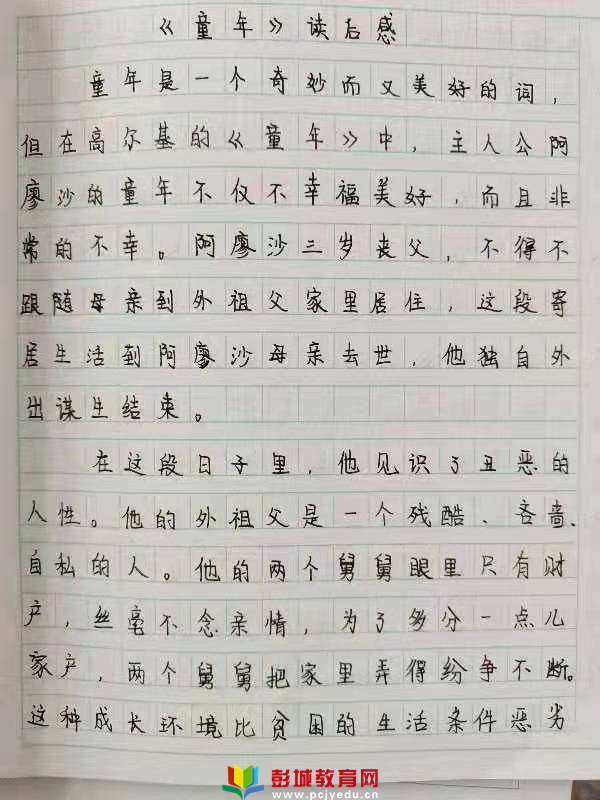 《童年》读后感
童年是一个奇妙而又美好的词，
但在高尔基的《童年》中，主人公阿
廖沙的童年不仅不幸福美好，而且非
常的不幸。阿廖沙三岁丧父，不得不
跟随母亲到外祖父家里居住，这段寄
居生活到阿廖沙母亲去世，他独自外
出谋生结束。
在这段日子里，他见识了丑恶的
人性。他的外祖父是一个残酷、吝啬、
自私的人。他的两个舅舅眼里只有财
产，丝毫不念亲情，为了多分一点儿
家产，两个舅舅把家里弄得纷争不断。
这种成长环境比贫困的生活条件恶劣
彭城教育网
www.pcjyedu.cn